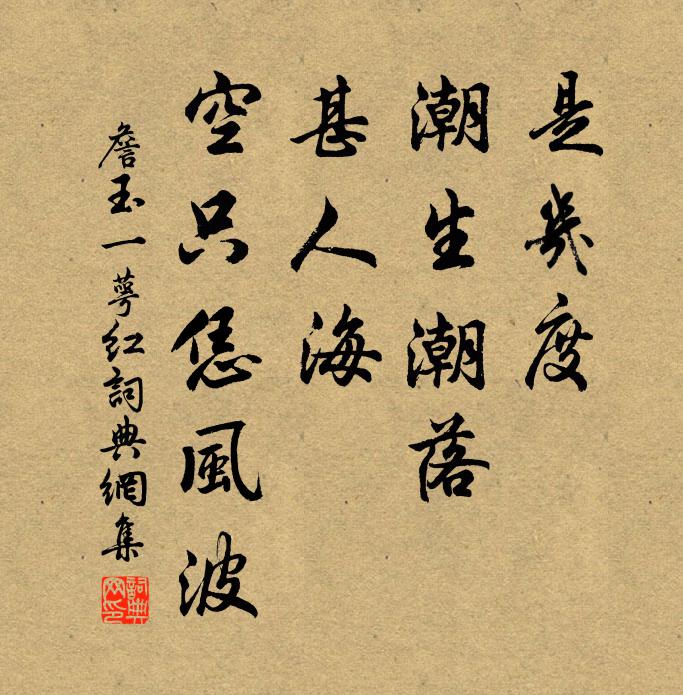 是幾度
潮生潮落
甚人海
空只恁風波
詹玉一萼紅詞典網集
詞典网印